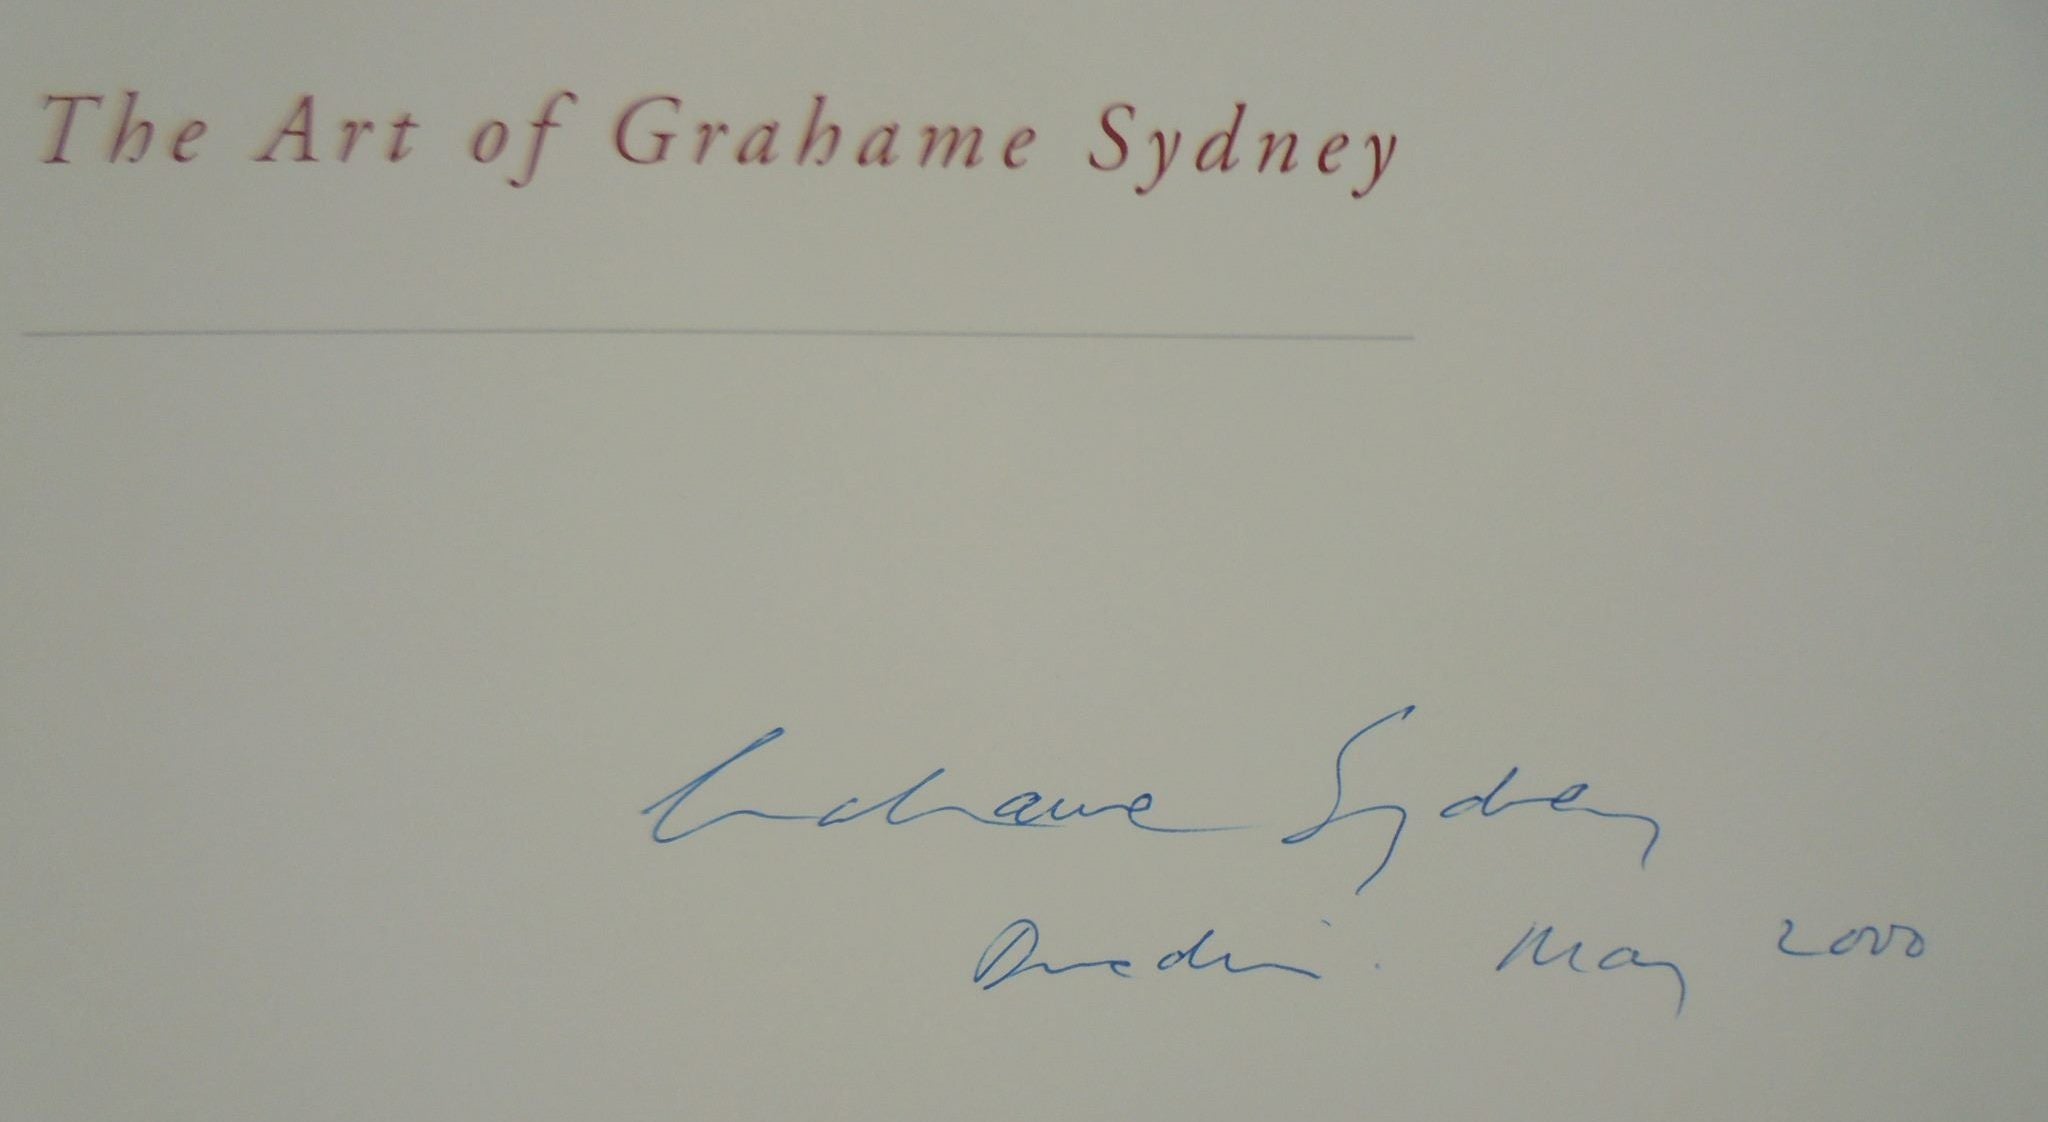 The Art of Grahame Sydney
Grahame Sydney
Dunedin. May 2000